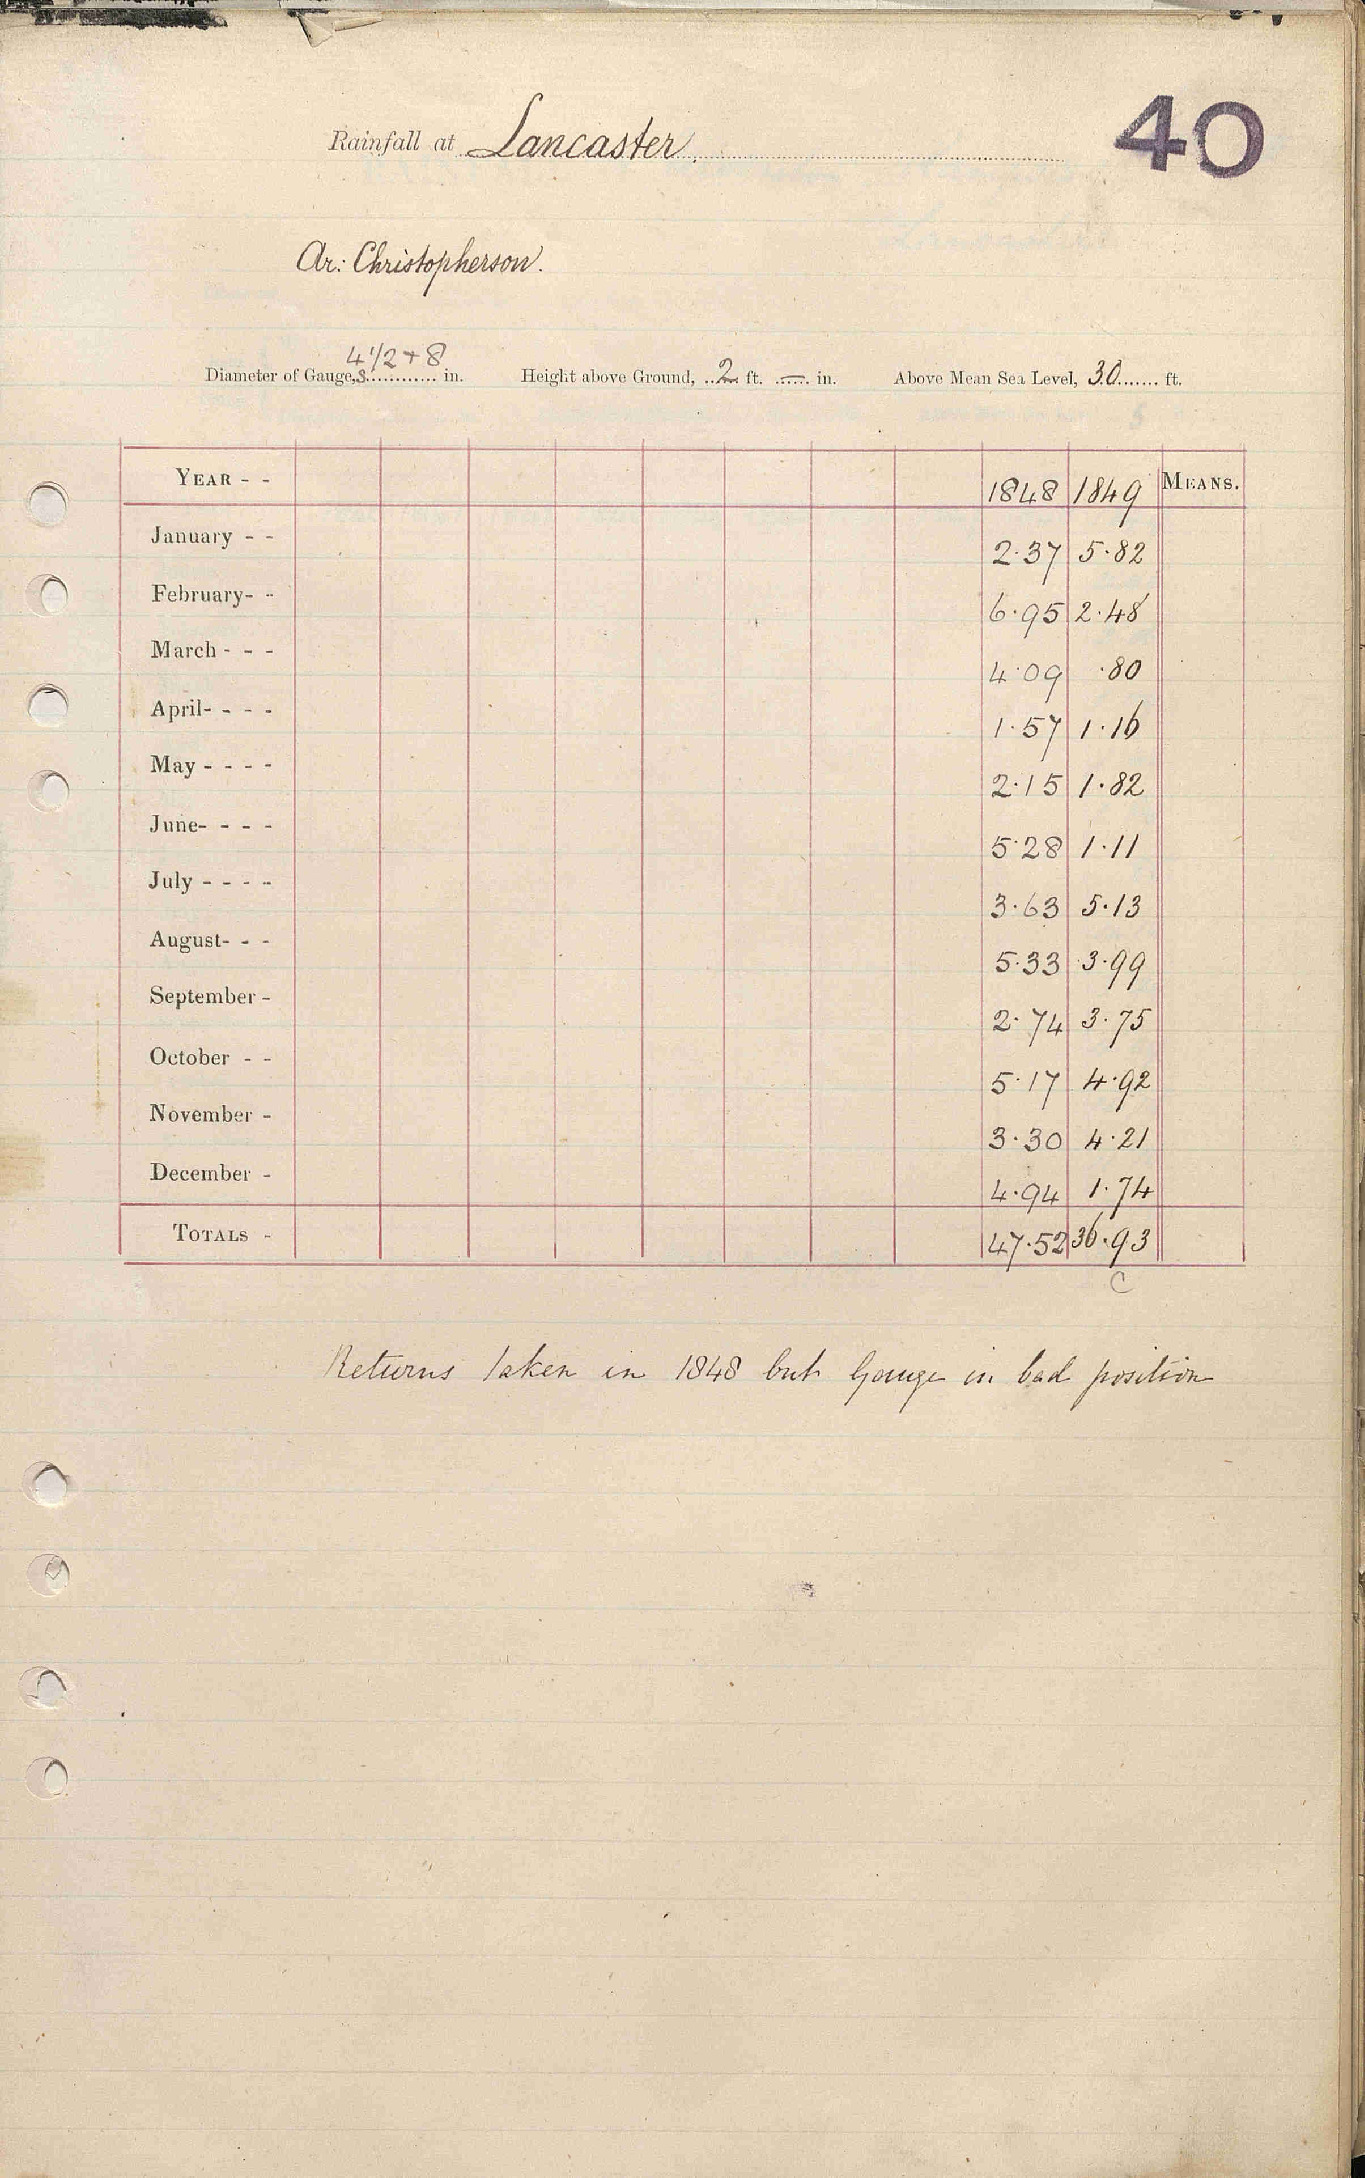 40
Rainfall at Lancaster.
Ar: Christopherson.
4 1/2 + 8
Diameter of Gauge, s. in. Height above Ground, 2 ft. — in. Above Mean Sea Level, 30 ft.
YEAR - - 1848 1849 MEANS.
January - - 2.37 5.82
February- - 6.95 2.48
March - - - 4.09 .80
April- - - - 1.57 1.16
May - - - - 2.15 1.82
June- - - - 5.28 1.11
July - - - - 3.63 5.13
August- - - 5.33 3.99
September - 2.74 3.75
October - - 5.17 4.92
November - 3.30 4.21
December - 4.94 1.74
TOTALS - 47.52 36.93
C
Returns taken in 1848 but Gauge in bad position